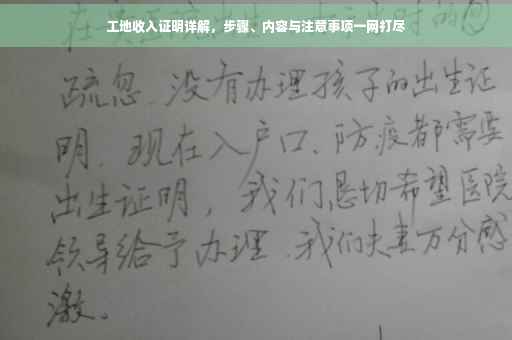 工地收入证明详解，步骤、内容与注意事项一网打尽
疏忽、没有办理孩子的出生证
明、现在入户口、防疫都需要
出生证明，我们恳切希望医院
领导给予办理、我们夫妻万分感
激。